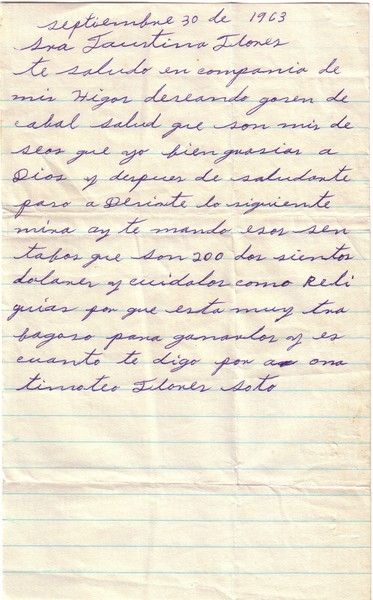 septiembre 30 de 1963
Sra Faustina Flores
te saludo en compania de
mis Higos deseando gosen de
cabal salud que son mis de
seos que yo bien grasias a
Dios y despues de saludarte
paso a Desirte lo siguiente
mira ay te mando esos sen
tabos que son 200 dos sientos
dolares y cuidalos como Reli
quias por que esta muy tra
bagoso para ganarlos y es
cuanto te digo por a ora
timoteo Flores Soto